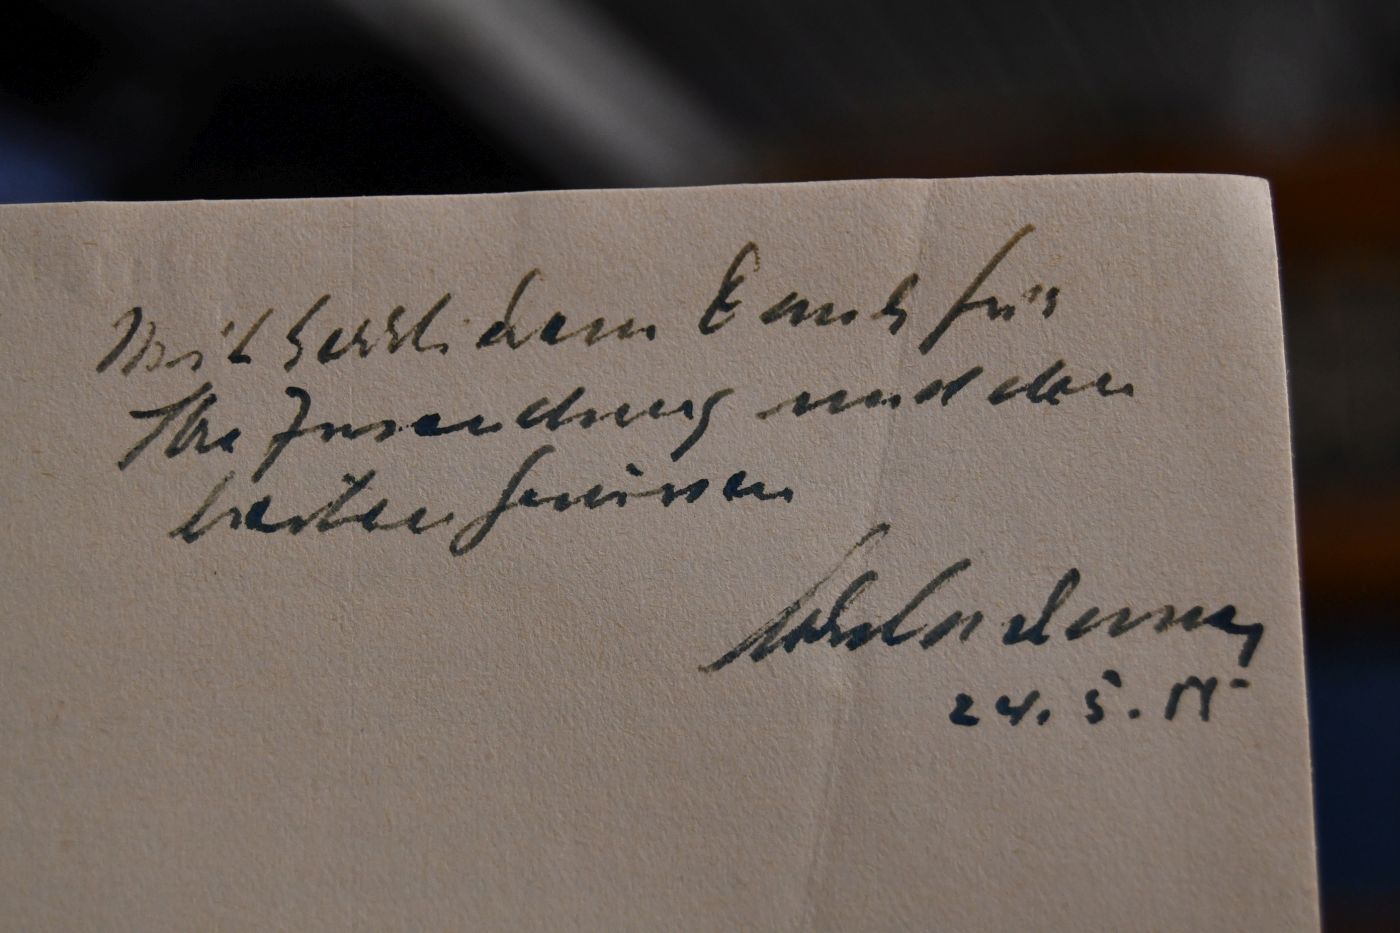 Mit herzlichem Dank für
Ihre Zusendung und den
besten Grüssen
24. 5.